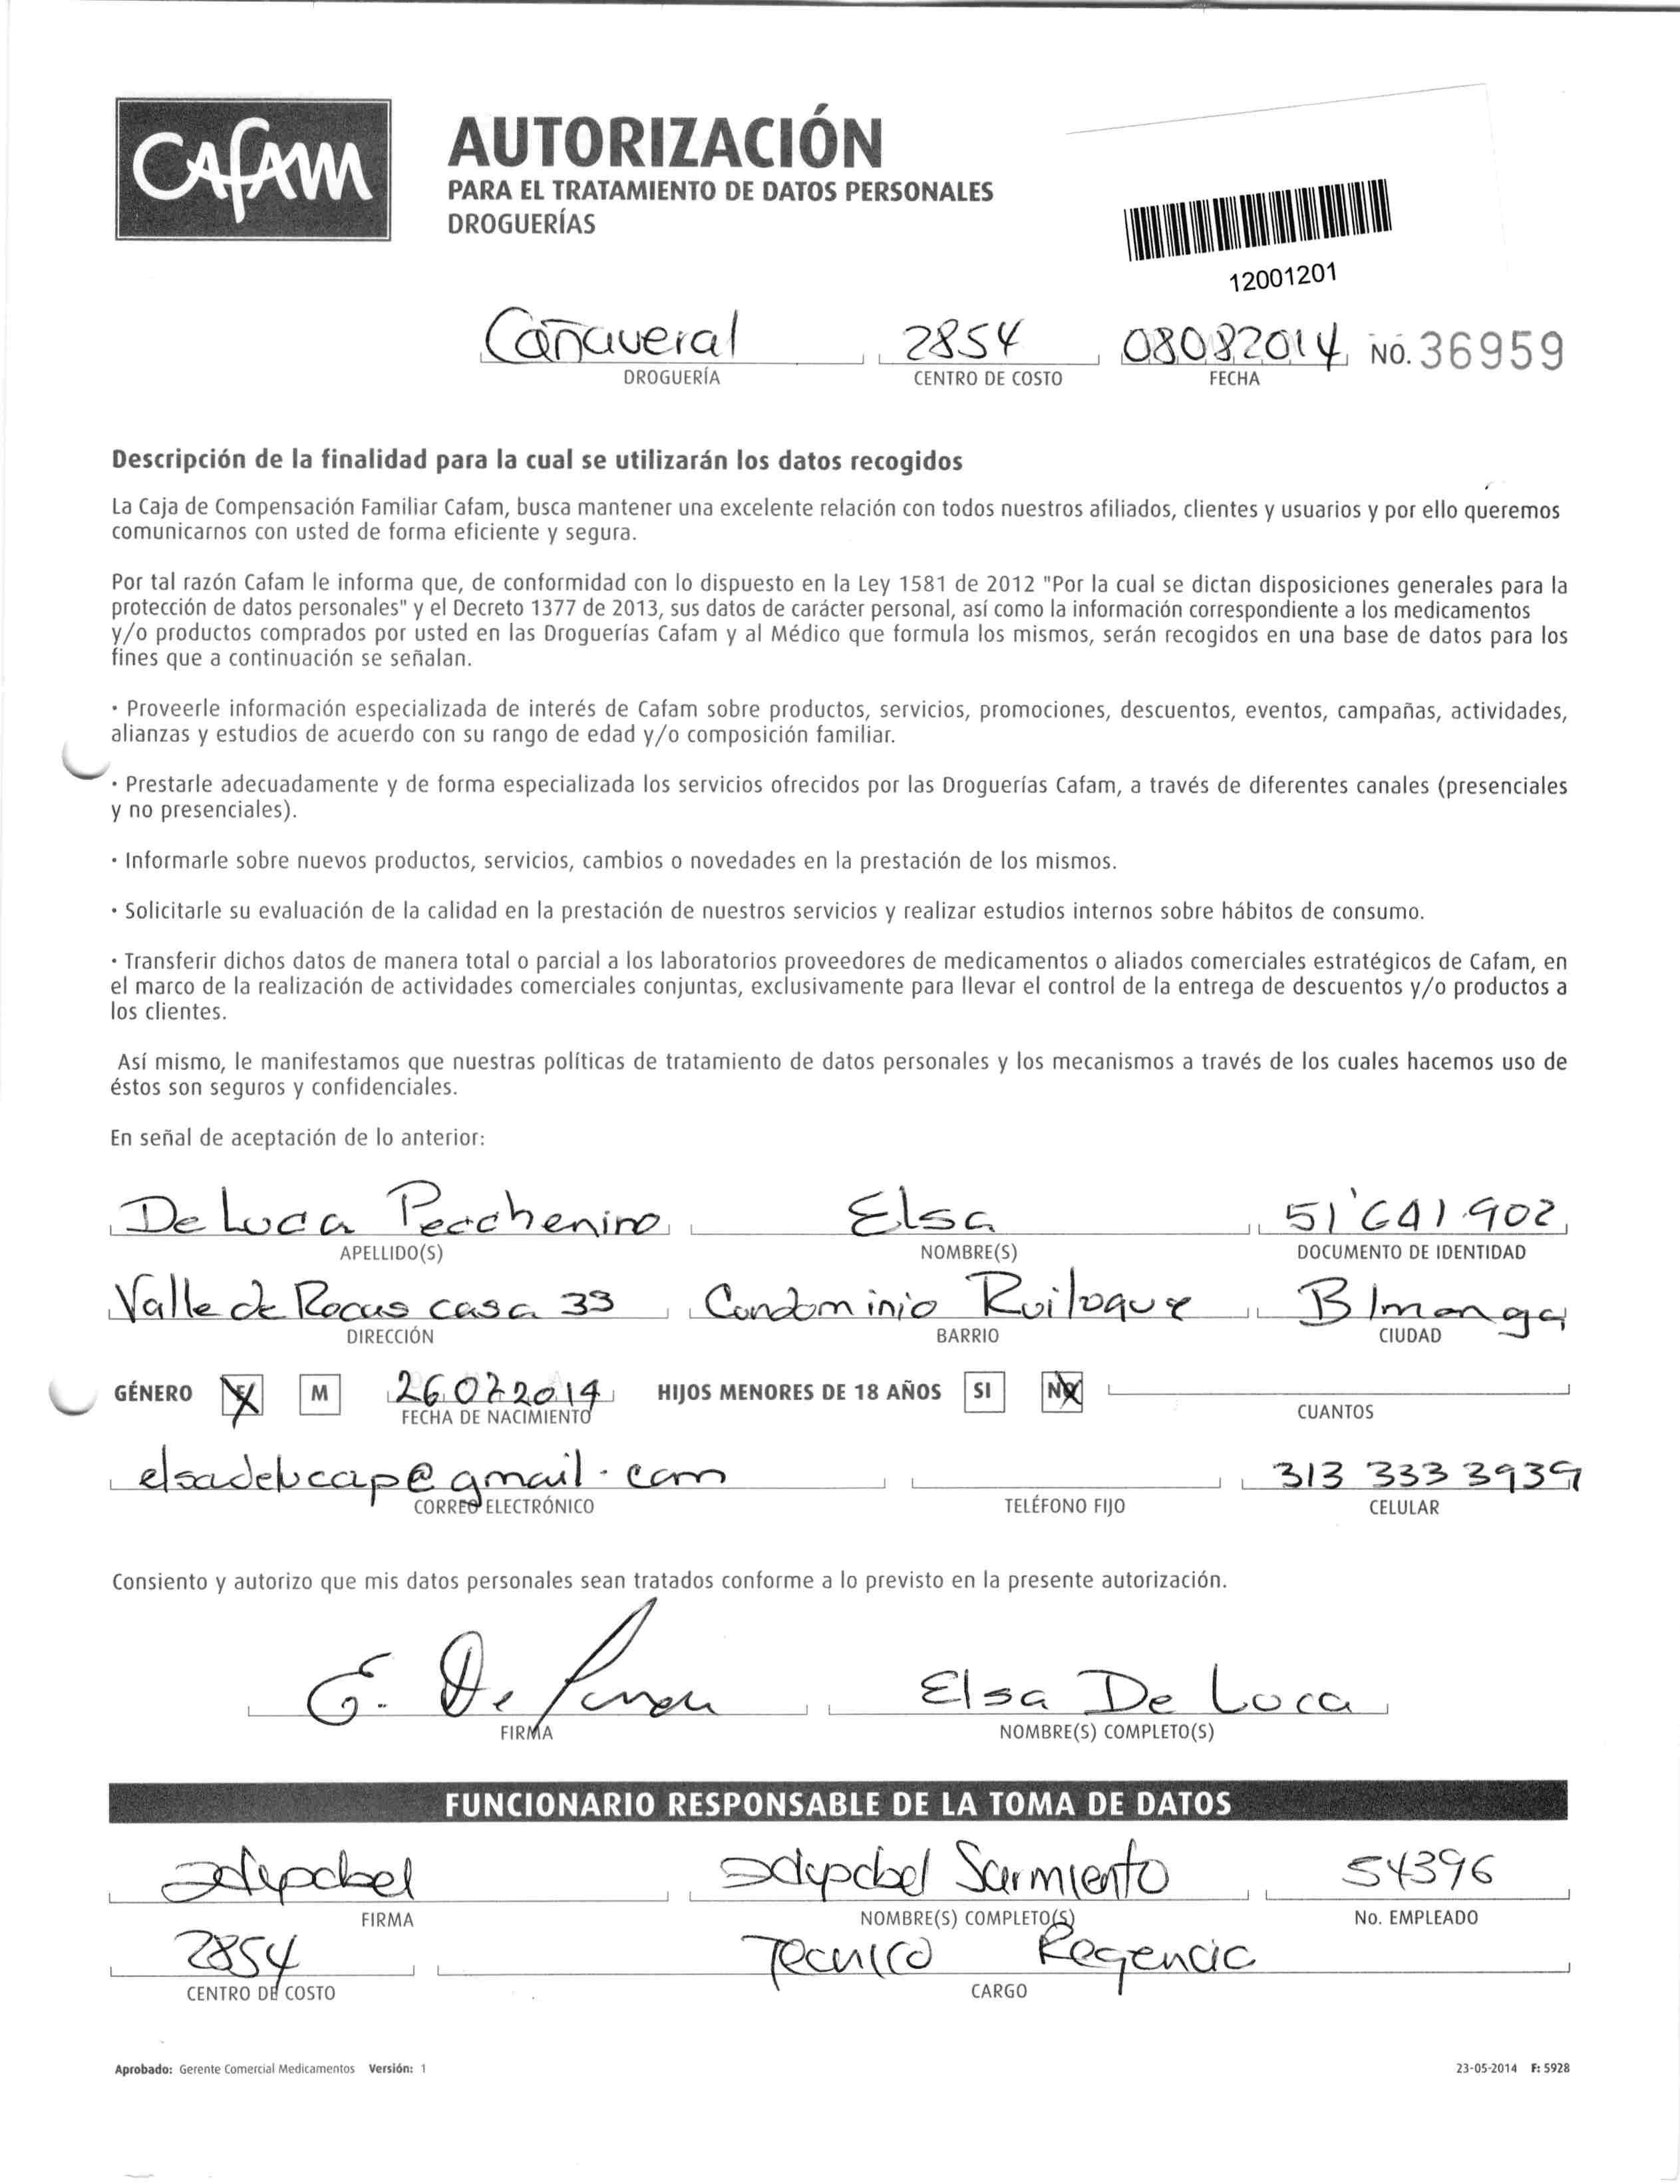 CAFAM
AUTORIZACIÓN
PARA EL TRATAMIENTO DE DATOS PERSONALES
DROGUERÍAS
12001201
Cañaveral 2854 08082014 NO. 36959
DROGUERÍA CENTRO DE COSTO FECHA
Descripción de la finalidad para la cual se utilizarán los datos recogidos
La Caja de Compensación Familiar Cafam, busca mantener una excelente relación con todos nuestros afiliados, clientes y usuarios y por ello queremos
comunicarnos con usted de forma eficiente y segura.
Por tal razón Cafam le informa que, de conformidad con lo dispuesto en la Ley 1581 de 2012 "Por la cual se dictan disposiciones generales para la
protección de datos personales" y el Decreto 1377 de 2013, sus datos de carácter personal, así como la información correspondiente a los medicamentos
y/o productos comprados por usted en las Droguerías Cafam y al Médico que formula los mismos, serán recogidos en una base de datos para los
fines que a continuación se señalan.
· Proveerle información especializada de interés de Cafam sobre productos, servicios, promociones, descuentos, eventos, campañas, actividades,
alianzas y estudios de acuerdo con su rango de edad y/o composición familiar.
· Prestarle adecuadamente y de forma especializada los servicios ofrecidos por las Droguerías Cafam, a través de diferentes canales (presenciales
y no presenciales).
· Informarle sobre nuevos productos, servicios, cambios o novedades en la prestación de los mismos.
· Solicitarle su evaluación de la calidad en la prestación de nuestros servicios y realizar estudios internos sobre hábitos de consumo.
· Transferir dichos datos de manera total o parcial a los laboratorios proveedores de medicamentos o aliados comerciales estratégicos de Cafam, en
el marco de la realización de actividades comerciales conjuntas, exclusivamente para llevar el control de la entrega de descuentos y/o productos a
los clientes.
Así mismo, le manifestamos que nuestras políticas de tratamiento de datos personales y los mecanismos a través de los cuales hacemos uso de
éstos son seguros y confidenciales.
En señal de aceptación de lo anterior:
De Luca Pecchenino Elsa 51'641.902
APELLIDO(S) NOMBRE(S) DOCUMENTO DE IDENTIDAD
Valle de Rocas casa 33 Condominio Ruitoque B/manga
DIRECCIÓN BARRIO CIUDAD
GÉNERO F M 26072014 HIJOS MENORES DE 18 AÑOS SI NO
FECHA DE NACIMIENTO CUANTOS
elsadelucap@gmail.com 313 333 3939
CORREO ELECTRÓNICO TELÉFONO FIJO CELULAR
Consiento y autorizo que mis datos personales sean tratados conforme a lo previsto en la presente autorización.
E. De Elsa De Luca
FIRMA NOMBRE(S) COMPLETO(S)
FUNCIONARIO RESPONSABLE DE LA TOMA DE DATOS
Sarmiento 54396
FIRMA NOMBRE(S) COMPLETO(S) No. EMPLEADO
2854 Tecnico Regencia
CENTRO DE COSTO CARGO
Aprobado: Gerente Comercial Medicamentos Versión: 1 23-05-2014 F: 5928